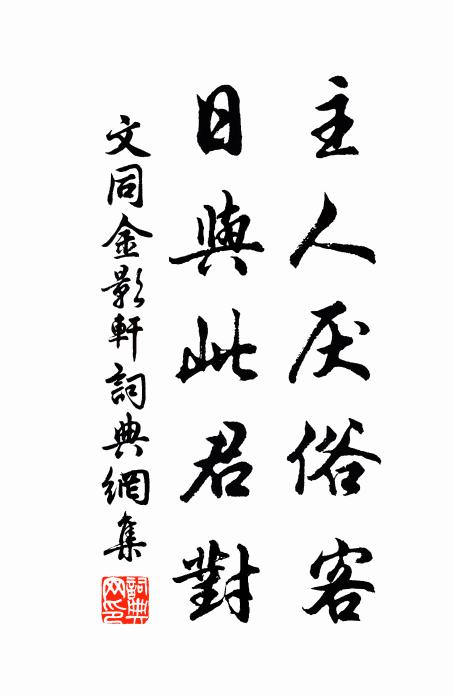 主人厌俗客
日與此君對
文同金影軒詞典網集
詞典网印